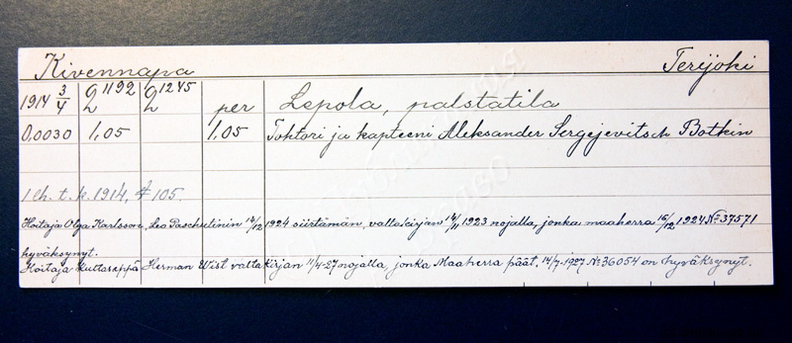 Kivennapa Terijoki
1914 3/4 1192 1245 per Lepola, palstatila
0,0030 1,05 1,05 Tohtori ja kapteeni Aleksander Sergejevitsch Botkin
1 lh. t. k. 1914, § 105.
Hoitaja Olga Karlsson, Leo Paschutinin 14/12 1924 siirtämän, valtakirjan 14/11 1923 nojalla, jonka maaherra 16/12 1924 No 37571
hyväksynyt.
Hoitaja Kuttaseppä Herman Wist valtakirjan 11/4-27 nojalla, jonka Maaherra päät. 14/7-1927 No 36054 on hyväksynyt.